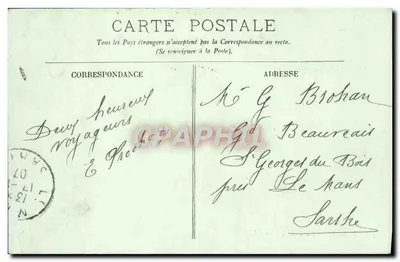 CARTE POSTALE
Tous les Pays étrangers n'acceptent pas la Correspondance au recto.
(Se renseigner à la Poste).
CORRESPONDANCE
ADRESSE
Deux heureux
voyageurs
E
Mr G Brohan
Gd Beauvais
St Georges du Bois
près Le Mans
Sarthe